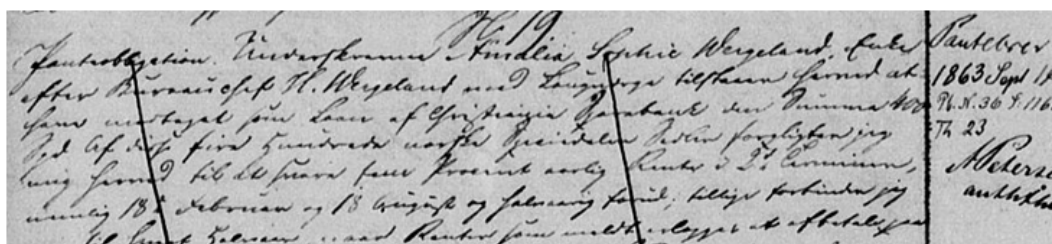 No 19
Panteobligation. Underskrevne Amalia Sophie Wergeland, Enke
efter Bureauchef H. Wergeland med Laugværge tilstaaer herved at
have modtaget som Laan af Christiania Sparebank den Summa 400
Spd. Af disse fire Hundrede norske Speciedaler Sedler forpligter jeg
mig herved til at svare fem Procent aarlig Rente i 2de Terminer,
nemlig 18de Februar og 18 August og halvaarig forud; tillige forbinder jeg
til hvert Halvaar, naar Renten som meldt erlægges at afbetale
Pantebrev
1863 Sept
Pb. N. 36 F. 116
Th 23
A Peters